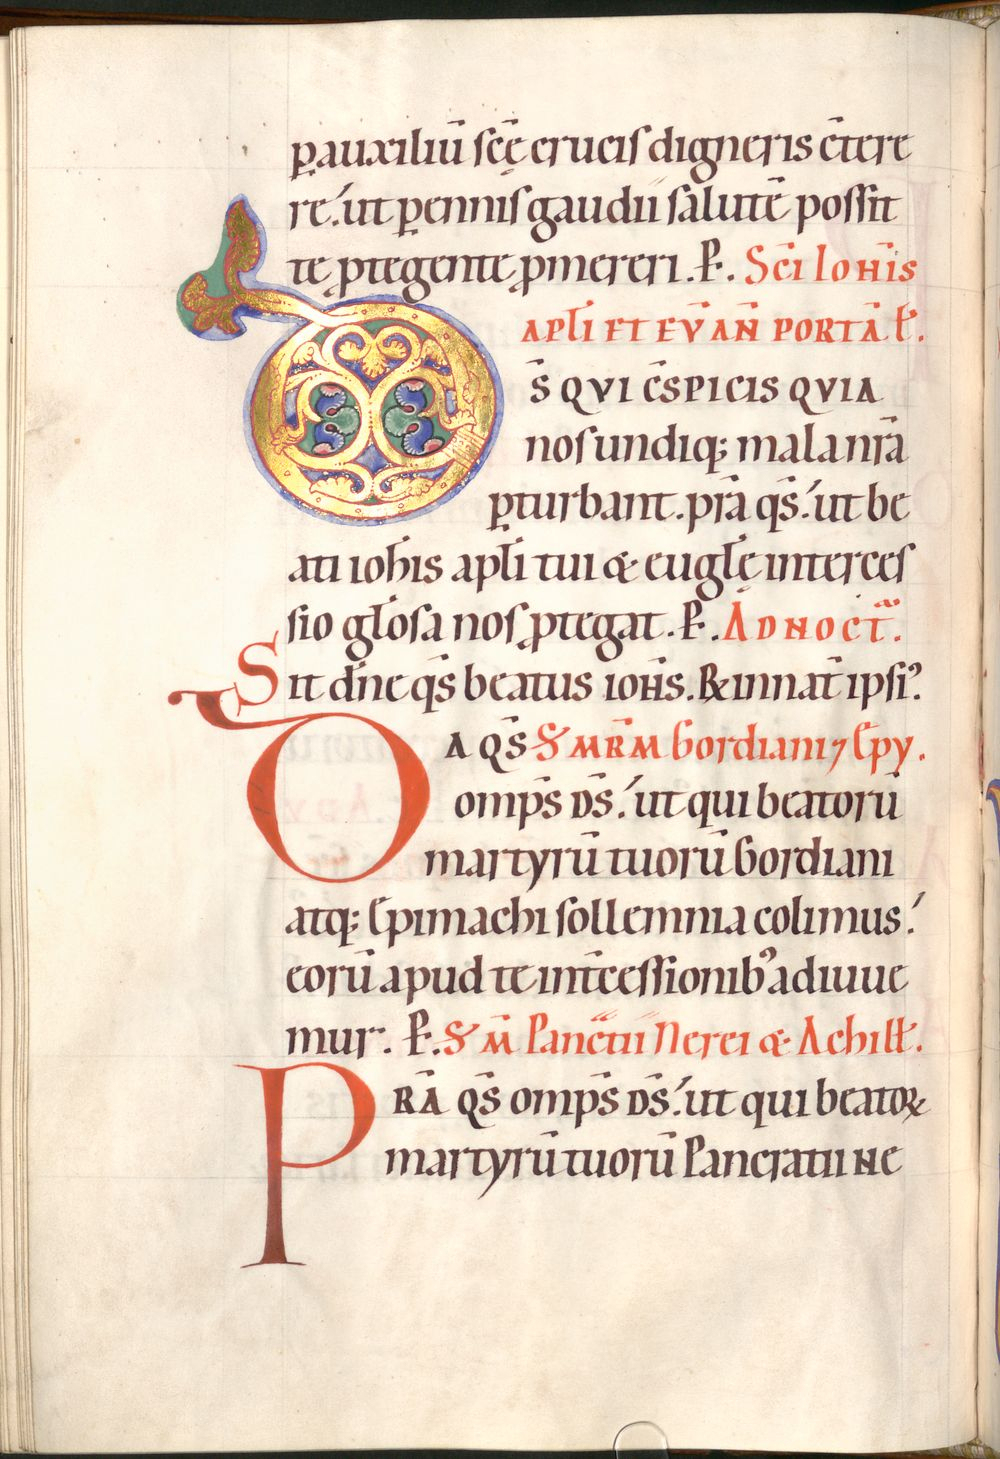 p̲auxiliū scē crucis digneris c̄tere
re. ut p̲ennis gaudii salutē possit
te ptegente pmereri. P̲. Sc̄i Ioh̄is
apl̄i et ev̄an portā l̄.
D s̄ qui c̄spicis quia
nos undiq; mala nr̄a
p̲turbant. pr̄a qs̄. ut be
ati ioh̄is apl̄i tui & eugl̄ę interces
sio gl̄osa nos ptegat. P̲. Ad noct̄.
Sit dn̄e qs̄ beatus ioh̄s. R& in nat̄ ipsi9.
D a qs̄ S. mr̄m Gordiani 7 Epy.
omp̄s ds̄. ut qui beatorū
martyrū tuorū Gordiani
atq; Epimachi sollemnia colimus.
eorū apud te int̄cessionib9 adiuue
mur. P̲. S. m̄ Panc̄tii Nerei & Achill̄.
P r̄a qs̄ omp̄s ds̄. ut qui beatoꝝ
martyrū tuorū Pancratii ne